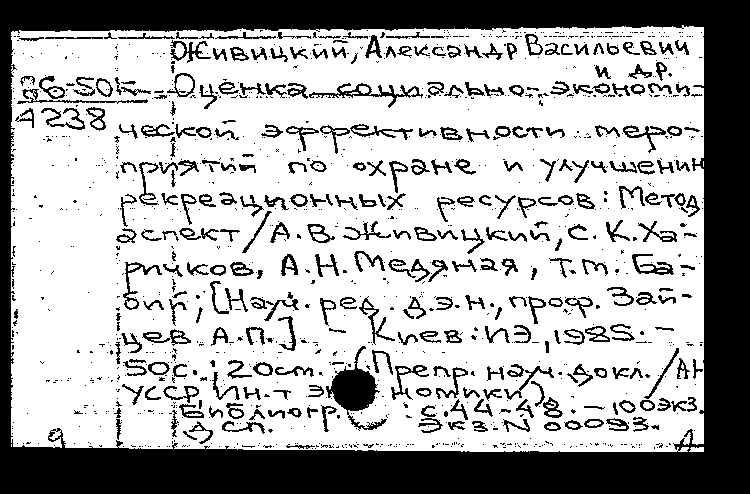 Живицкий, Александр Васильевич
и др.
86-50к Оценка социально-экономи-
4238
ческой эффективности меро-
приятий по охране и улучшению
рекреационных ресурсов: Метод
аспект / А.В. Живицкий, С.К. Ха-
ричков, А.Н. Медяная, Т.т. Ба-
бий; [Науч. ред. д.э.н., проф. Зай-
цев А.П.]. - Киев: ИЭ, 1985. -
50с.; 20см. - (Препр. науч. докл. / АН
УССР, Ин-т экономики)
Библиогр.: с.44-48. - 100экз.
Дсп. Экз. N 00093.
9 А